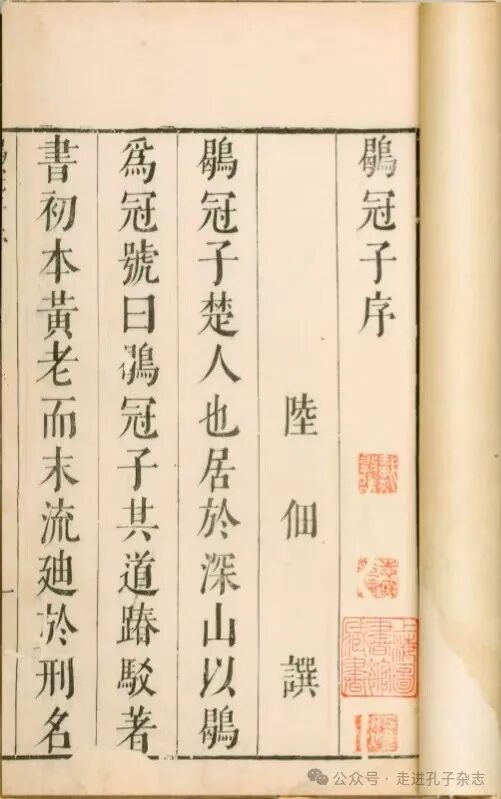 鶡冠子序
陸佃譔
鶡冠子楚人也居於深山以鶡
爲冠號曰鶡冠子其道踳駁著
書初本黃老而末流迪於刑名
上海圖書館藏書
公众号·走进孔子杂志